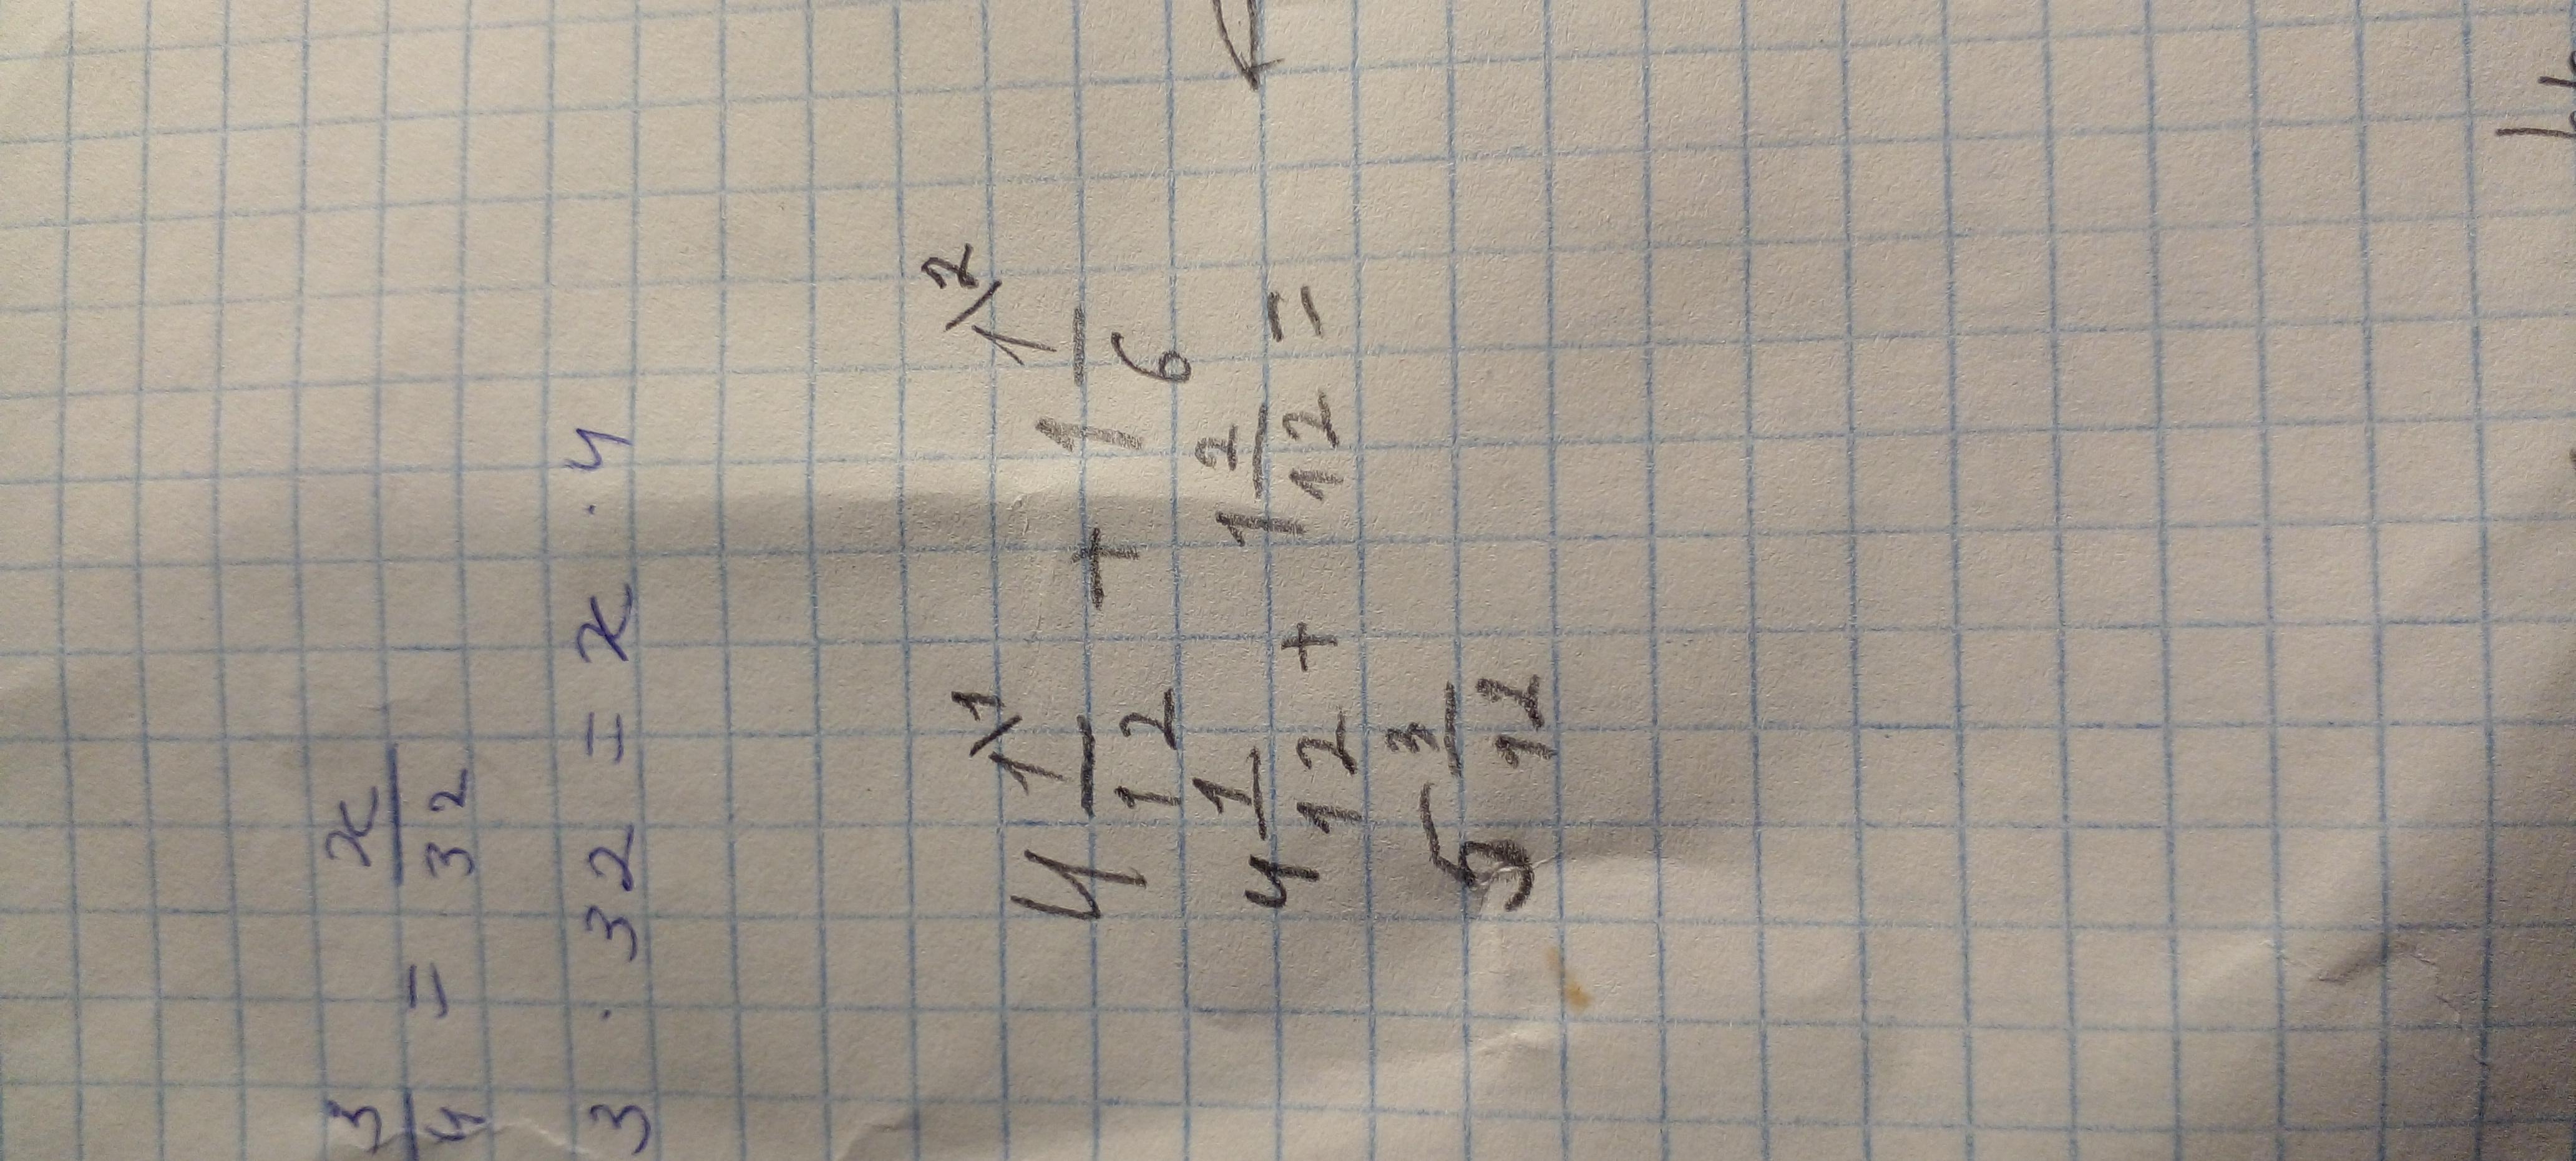 3/4 = x/32
3 · 32 = x · 4
4 1\1/12 + 1 1\2/6
4 1/12 + 1 2/12 =
5 3/12